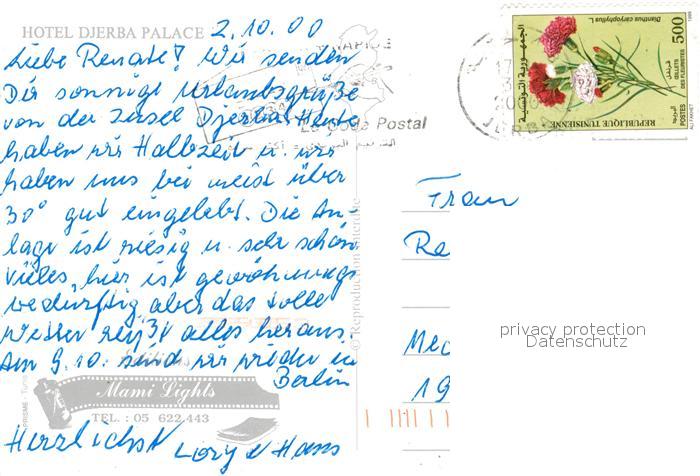 HOTEL DJERBA PALACE 2.10.00
Liebe Renate! Wir senden
Dir sonnige Urlaubsgrüße
von der Insel Djerba. Heute
haben wir Halbzeit u. wir
haben uns bei meist über
30° gut eingelebt. Die An-
lage ist riesig u. sehr schön
vieles, hier ist gewöhnungs
bedürftig, aber das tolle
Wetter reißt alles heraus.
Am 9.10. sind wir wieder in
Berlin
Mami Lights
TEL. : 05 622 443
Herzlichst Lory u Hans
© Reproduction interdite
Le Code Postal
Dianthus caryophyllus L.
500
1999
الجمهورية التونسية
قرنفل
OEILLETS
DES FLEURISTES
POSTES
REPUBLIQUE TUNISIENNE
Frau
Re
Mec
19
privacy protection
Datenschutz